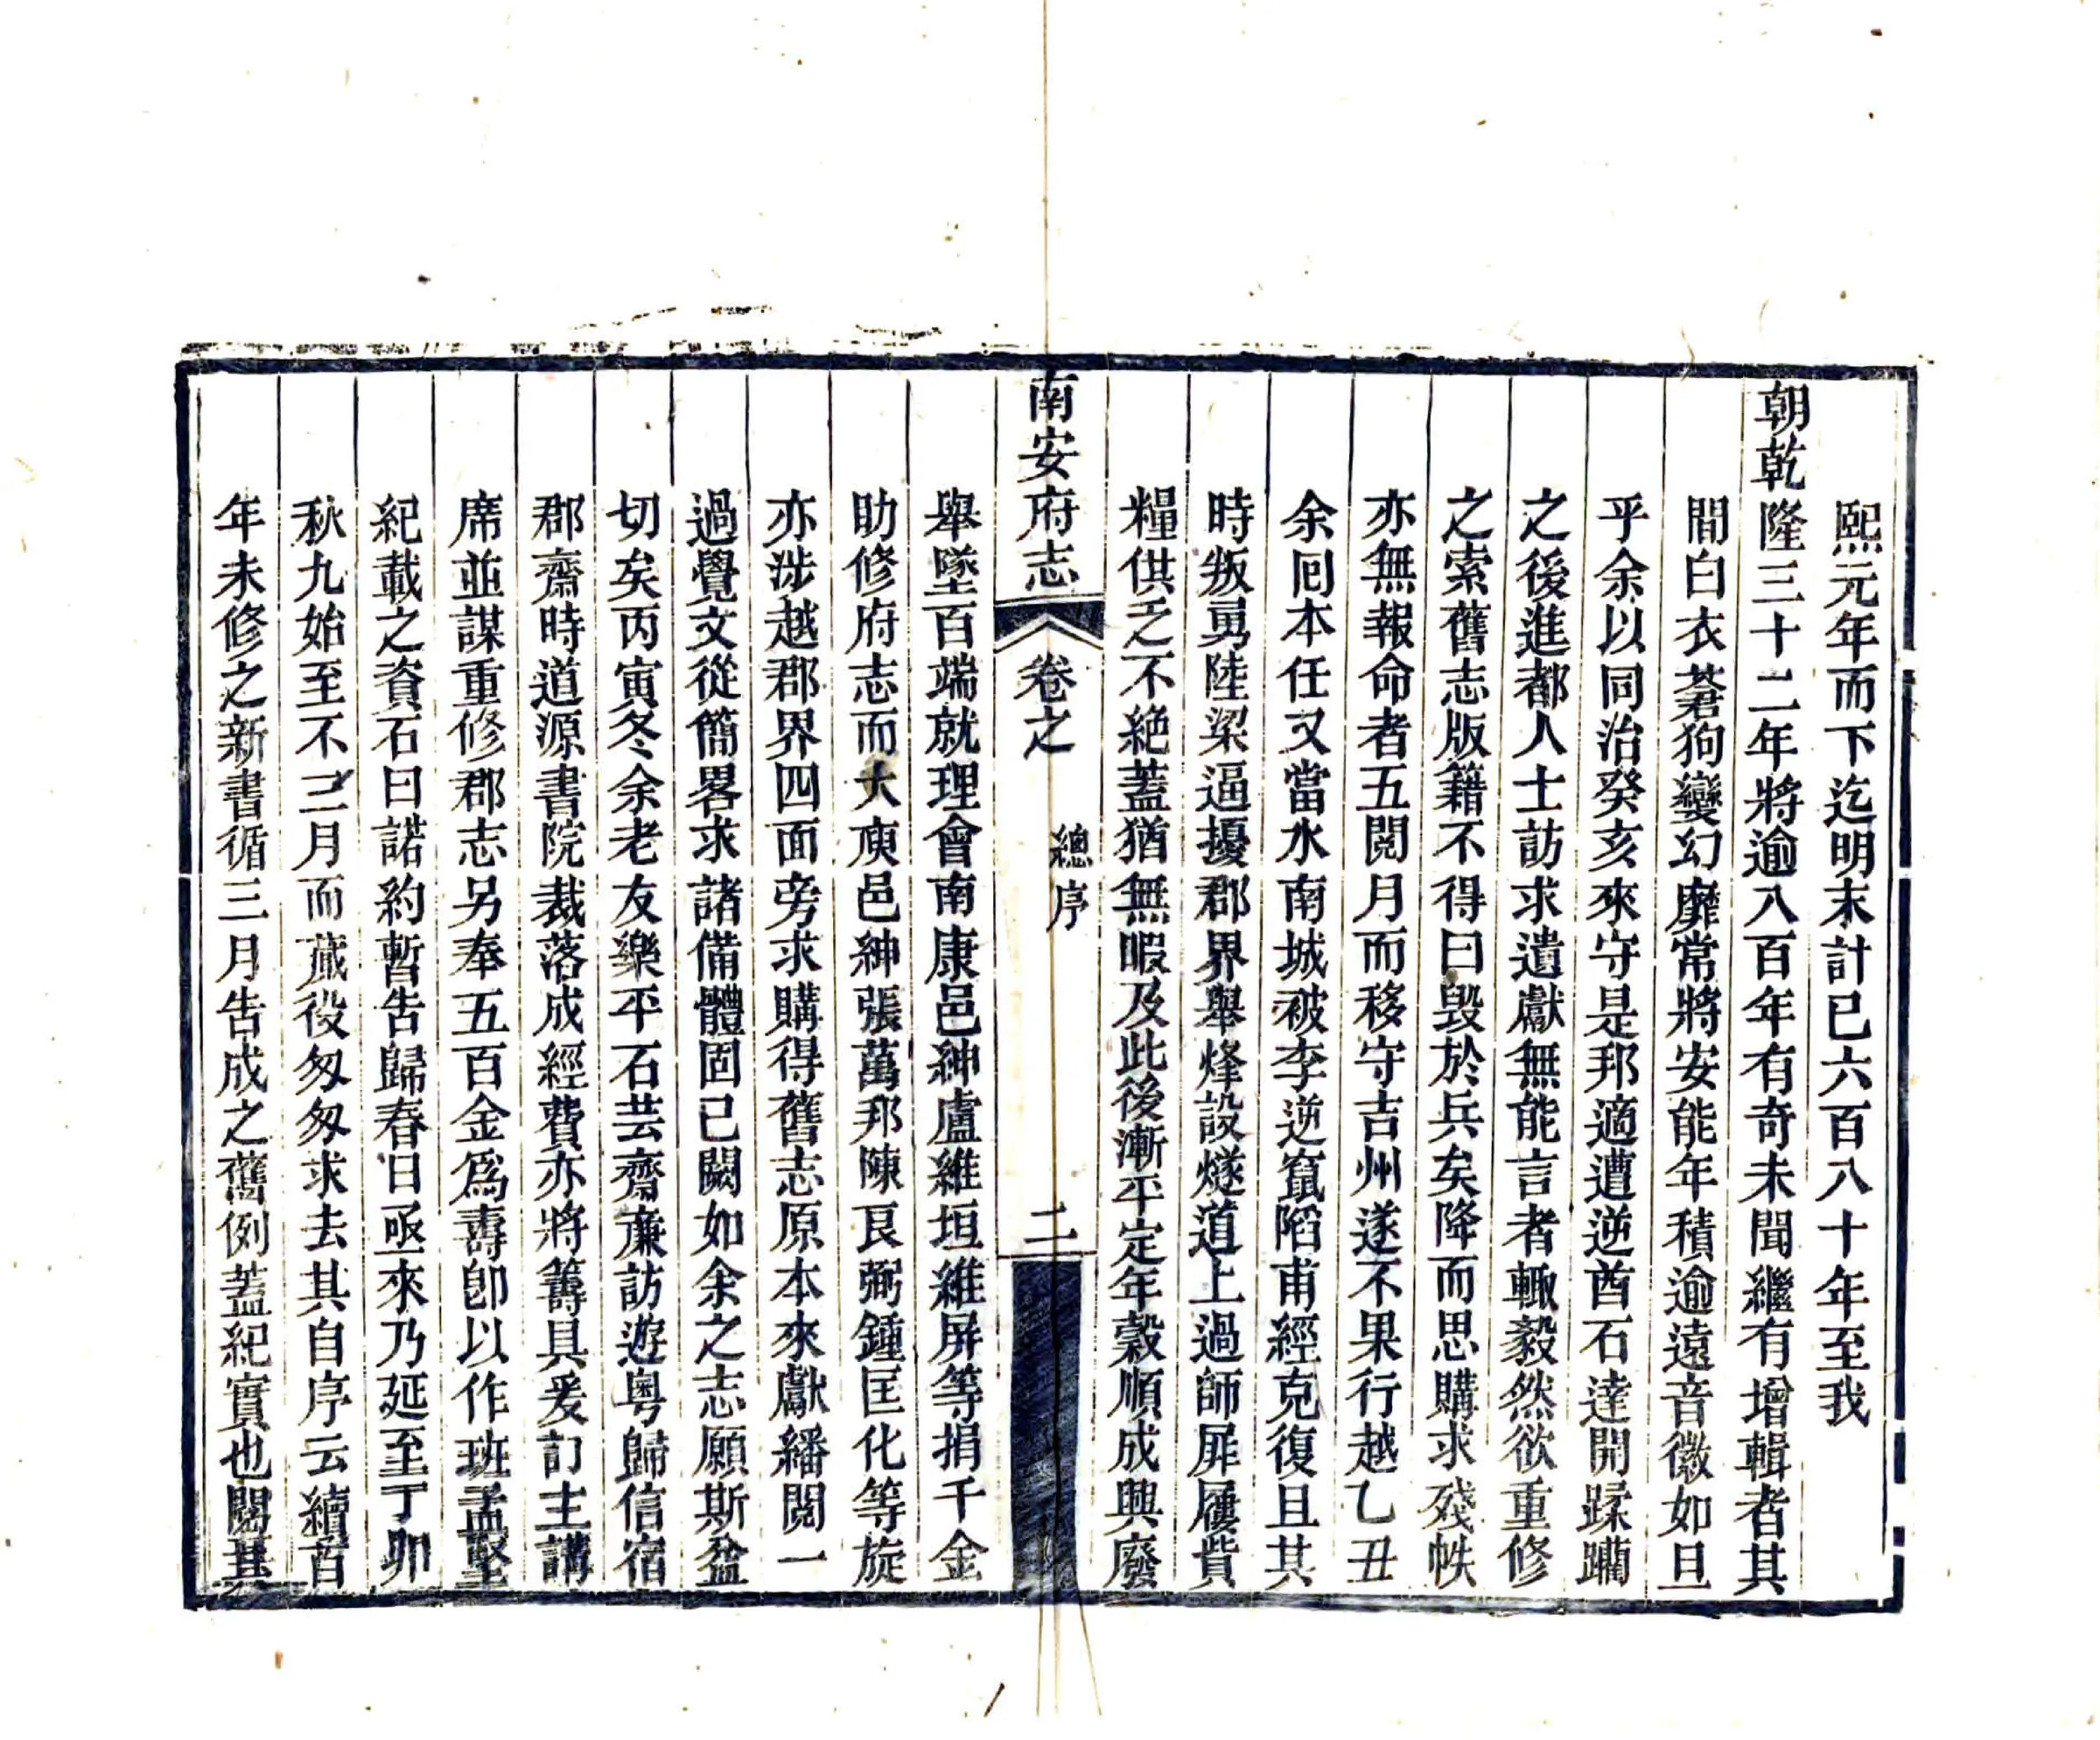 熙元年而下迄明末計已六百八十年至我
朝乾隆三十二年將逾八百年有奇未聞繼有增輯者其
間白衣蒼狗變幻靡常將安能年積逾遠音徽如旦
乎余以同治癸亥來守是邦適遭逆酋石達開蹂躪
之後進都人士訪求遺獻無能言者輒毅然欲重修
之索舊志版籍不得曰毀於兵矣降而思購求殘帙
亦無報命者五閱月而移守吉州遂不果行越乙丑
余囘本任又當水南城被李逆竄陷甫經克復且其
時叛勇陸梁逼擾郡界舉烽設燧道上過師屝屨貲
糧供乏不絕蓋猶無暇及此後漸平定年穀順成興廢
南安府志
卷之
總序
二
舉墜百端就理會南康邑紳盧維垣維屏等捐千金
助修府志而大庾邑紳張萬邦陳艮弼鍾匡化等旋
亦涉越郡界四面旁求購得舊志原本來獻繙閱一
過覺文從簡畧求諸備體固已闕如余之志願斯益
切矣丙寅冬余老友樂平石芸齋廉訪遊粵歸信宿
郡齋時道源書院裁落成經費亦將籌具爰訂主講
席並謀重修郡志另奉五百金爲壽卽以作班孟堅
紀載之資石曰諾約暫告歸春日亟來乃延至丁卯
秋九始至不三月而蕆役匆匆求去其自序云續百
年未修之新書循三月告成之舊例蓋紀實也閱其